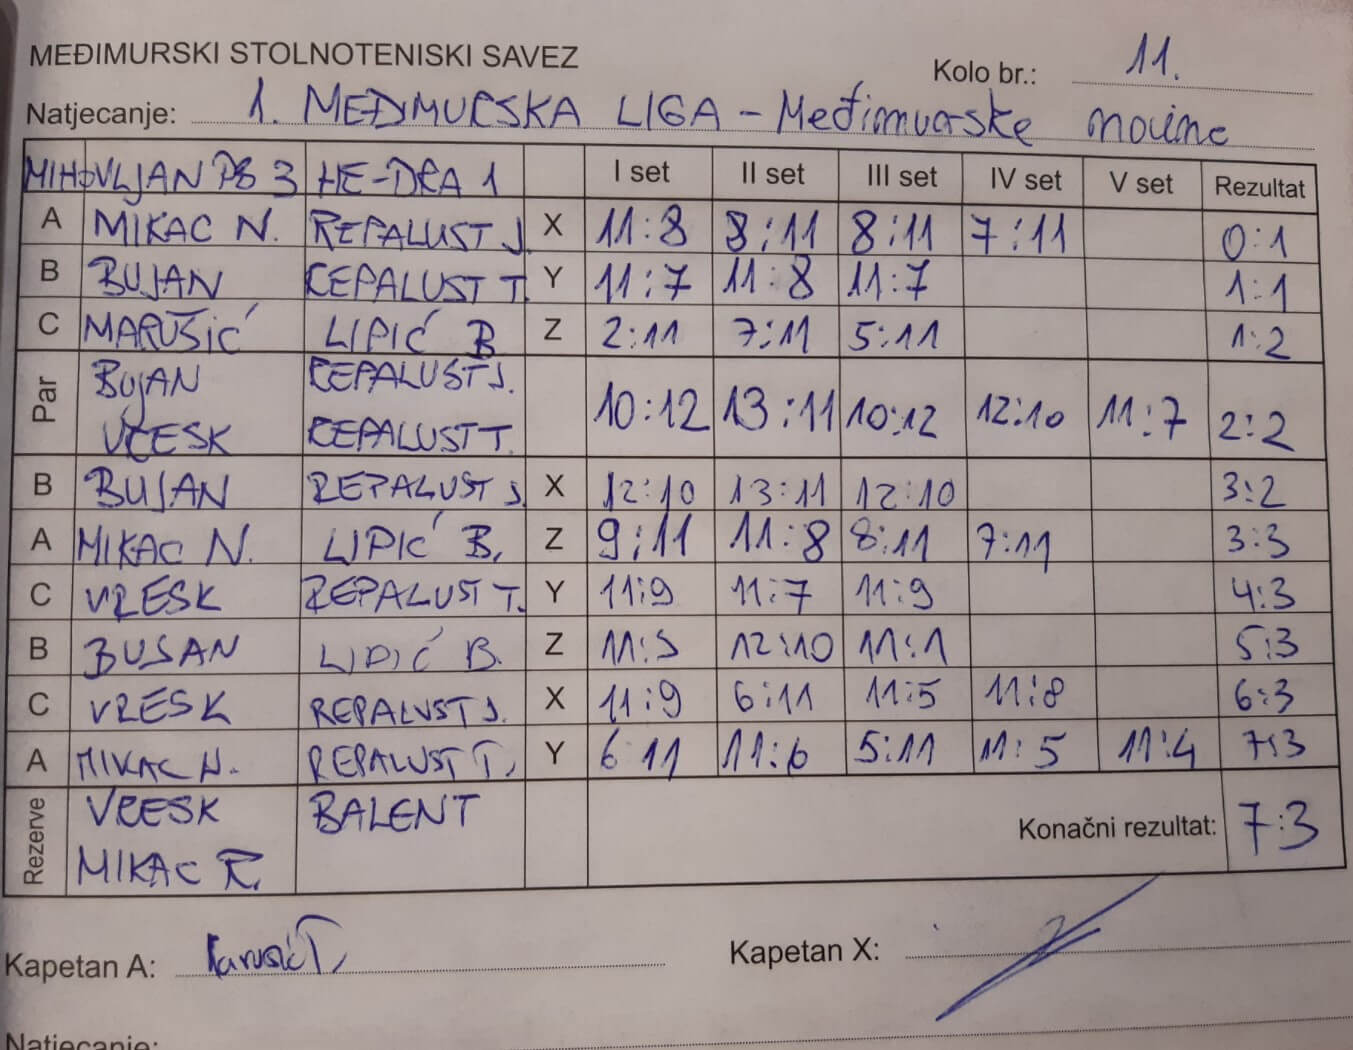 MEĐIMURSKI STOLNOTENISKI SAVEZ Kolo br.: 11.
Natjecanje: 1. MEĐIMURSKA LIGA - Međimurske novine
MIHOVLJAN PB 3 HE-DRA 1 I set II set III set IV set V set Rezultat
A MIKAC N. REPALUST J. X 11:8 8:11 8:11 7:11 0:1
B BUJAN REPALUST T. Y 11:7 11:8 11:7 1:1
C MARUŠIĆ LIPIĆ B Z 2:11 7:11 5:11 1:2
Par BUJAN REPALUST J.
VRESK REPALUST T. 10:12 13:11 10:12 12:10 11:7 2:2
B BUJAN REPALUST J. X 12:10 13:11 12:10 3:2
A MIKAC N. LIPIĆ B. Z 9:11 11:8 8:11 7:11 3:3
C VRESK REPALUST T. Y 11:9 11:7 11:9 4:3
B BUJAN LIPIĆ B. Z 11:5 12:10 11:1 5:3
C VRESK REPALUST J. X 11:9 6:11 11:5 11:8 6:3
A MIKAC N. REPALUST T. Y 6 11 11:6 5:11 11:5 11:4 7:3
Rezerve VRESK BALENT
MIKAC R. Konačni rezultat: 7:3
Kapetan A: Kapetan X:
Natjecanje: